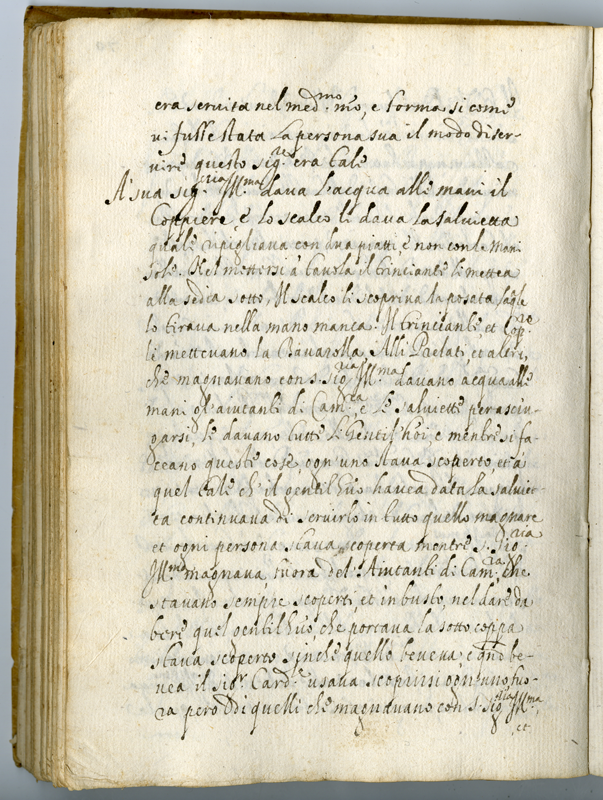 era servita nel med.mo mo, e forma si come
vi fusse stata la persona sua il modo di ser-
vire questo sig.re era tale
A sua sig.ria Ill.ma dava l'acqua alle mani il
Coppiere, e lo scalco li dava la salvietta
quale ripigliava con dua piatti, e non con le mani
sole. Nel mettersi à tavola il trinciante le mettea
alla sedia sotto, Il scalco li scopriva la posata,
lo tirava nella mano manca. Il trinciante, et Cop.re
li mettevano la Bavarolla, Alli Prelati, et altri,
che magnavano con s. sig.ria Ill.ma davano acqua alle
mani gl'aiutanti di Cam.ra, e le salviette per asciu-
garsi, le davano tutte li Gentilhoi, e mentre si fa-
ceano queste cose, ogn'uno stava scoperto, et à
quel tale ch'il gentilhuo havea data la salviet-
ta continuava di servirlo in tutto quello magnare
et ogni persona stava scoperta mentre s. sig.ria
Ill.ma magnava fuora del Aiutanti di Cam.ra, che
stavano sempre scoperti, et in busto, nel dare da
bere quel gentilhuo, che portava la sotto coppa
stava scoperto sinche quello beveva, e qño be-
vea il sig.r Card.e usava scoprirsi ogn'uno fuo-
ra pero di quelli che magnavano con s. sig.ria Ill.ma,
et